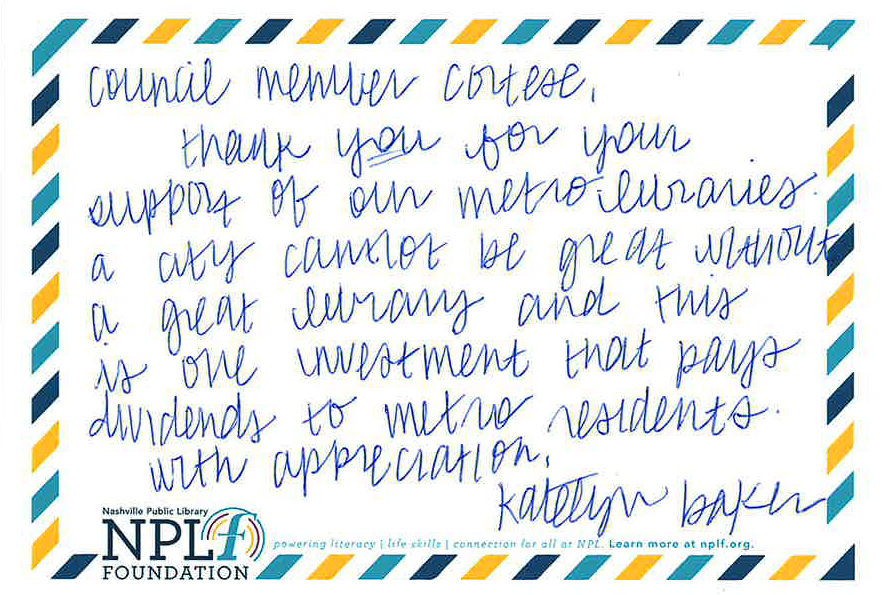 council member cortese,
thank you for your
support of our metro libraries.
a city cannot be great without
a great library and this
is one investment that pays
dividends to metro residents.
with appreciation,
katelyn baker
Nashville Public Library
NPLf
FOUNDATION
powering literacy | life skills | connection for all at NPL. Learn more at nplf.org.